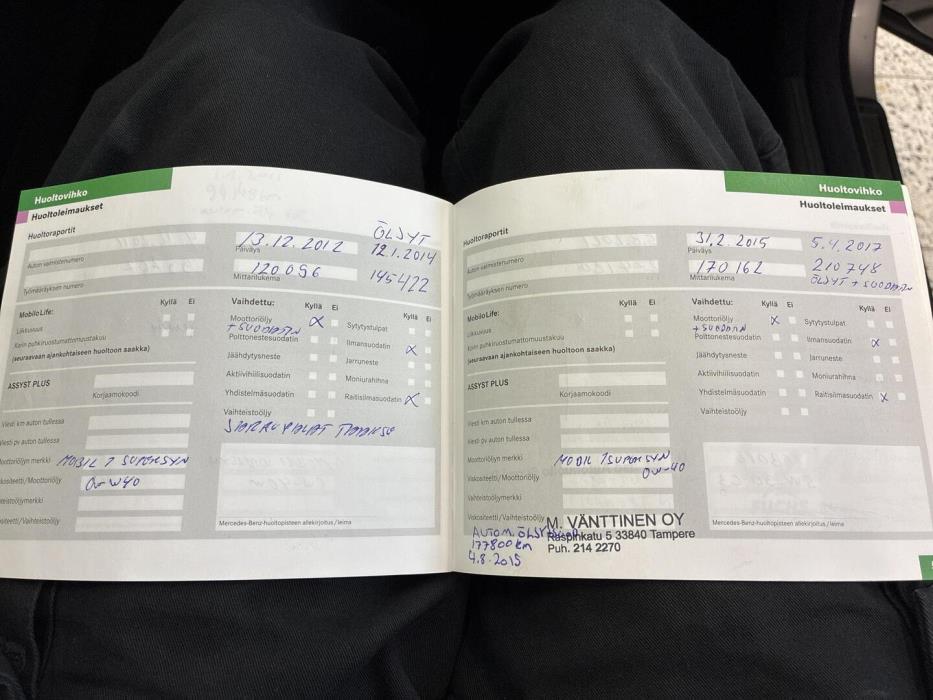 Huoltovihko
Huoltoleimaukset
Huoltoraportit
13.12.2012
Päiväys
ÖLJYT
12.1.2014
Auton valmistenumero
120 096
Mittarilukema
145422
Työmääräyksen numero
MobiloLife:
Kyllä Ei
Liikkuvuus
Korin puhkiruostumattomuustakuu
(seuraavaan ajankohtaiseen huoltoon saakka)
ASSYST PLUS
Korjaamokoodi
Viesti km auton tullessa
Viesti pv auton tullessa
Moottoriöljyn merkki MOBIL 1 SUPERSYN
Viskositeetti/Moottoriöljy 0-W40
Vaihteistoöljymerkki
Viskositeetti/Vaihteistoöljy
Vaihdettu:
Kyllä Ei
Moottoriöljy X
+ SUODATIN
Polttonestesuodatin
Jäähdytysneste
Aktiivihiilisuodatin
Yhdistelmäsuodatin
Vaihteistoöljy
Kyllä Ei
Sytytystulpat
Ilmansuodatin X
Jarruneste
Moniurahihna
Raitisilmasuodatin X
Mercedes-Benz-huoltopisteen allekirjoitus/leima
Huoltovihko
Huoltoleimaukset
Huoltoraportit
31,2.2015
Päiväys
5.4.2017
Auton valmistenumero
170 162
Mittarilukema
210 748
ÖLJYT + SUODATIN
Työmääräyksen numero
MobiloLife:
Kyllä Ei
Liikkuvuus
Korin puhkiruostumattomuustakuu
(seuraavaan ajankohtaiseen huoltoon saakka)
ASSYST PLUS
Korjaamokoodi
Viesti km auton tullessa
Viesti pv auton tullessa
Moottoriöljyn merkki MOBIL 1 SUPERSYN
Viskositeetti/Moottoriöljy 0W-40
Vaihteistoöljymerkki
Viskositeetti/Vaihteistoöljy
Vaihdettu:
Kyllä Ei
Moottoriöljy X
+ SUODATIN
Polttonestesuodatin
Jäähdytysneste
Aktiivihiilisuodatin
Yhdistelmäsuodatin
Vaihteistoöljy
Kyllä Ei
Sytytystulpat
Ilmansuodatin X
Jarruneste
Moniurahihna
Raitisilmasuodatin X
Mercedes-Benz-huoltopisteen allekirjoitus/leima
M. VÄNTTINEN OY
Raspinkatu 5 33840 Tampere
Puh. 214 2270
AUTOM. ÖLJY
177800 km
4.8.2015